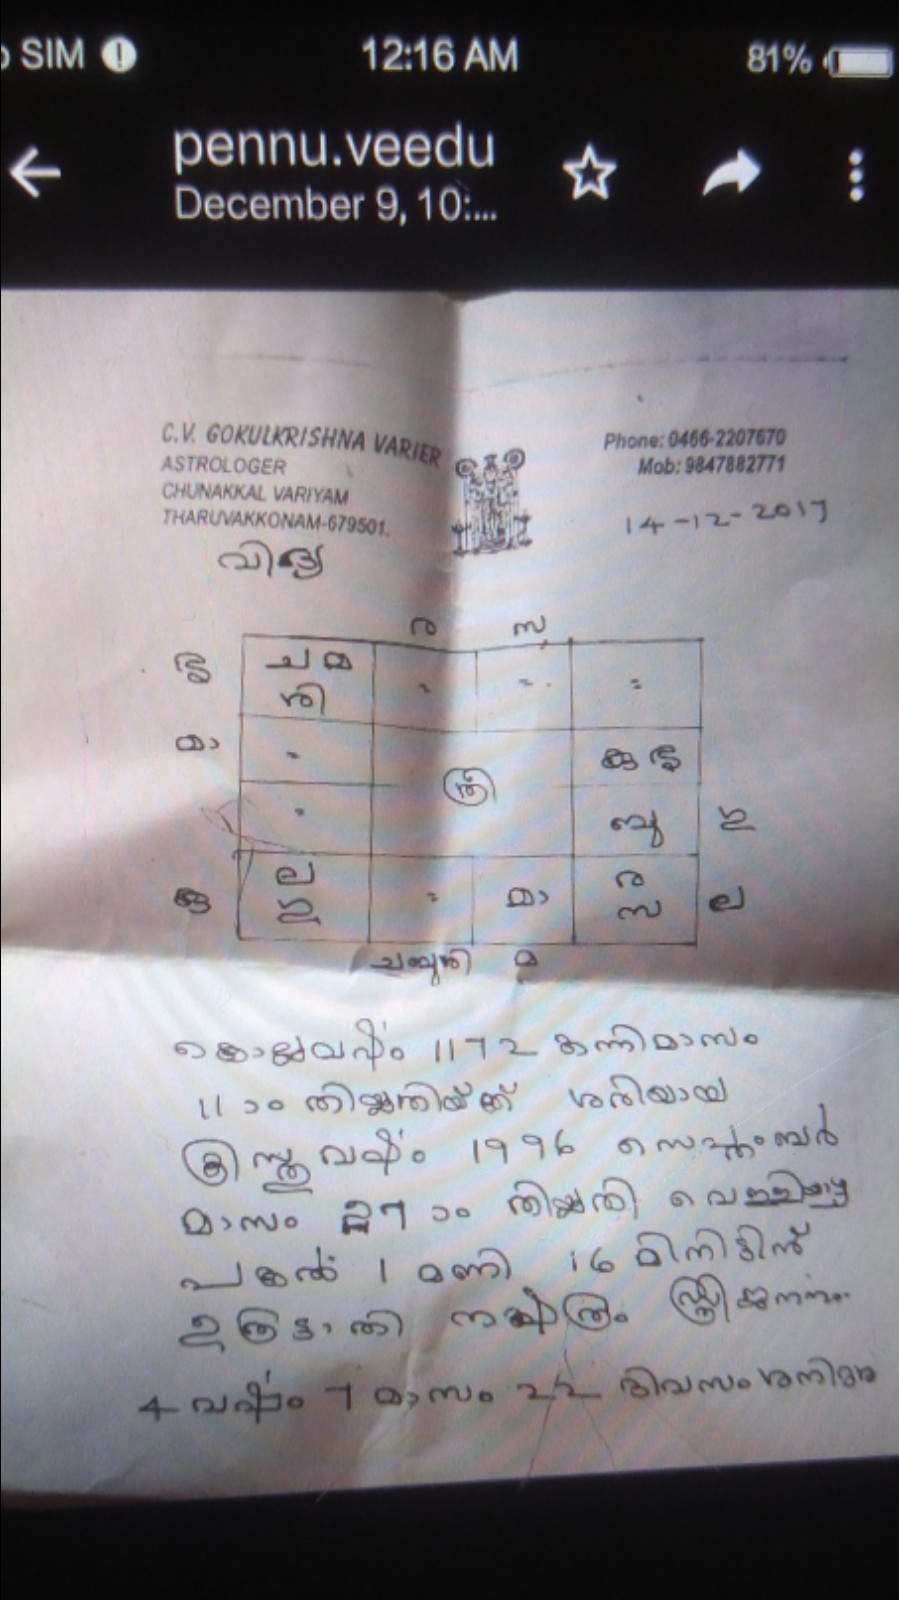 SIM
12:16 AM
81%
pennu.veedu
December 9, 10:...
C.V. GOKULKRISHNA VARIER
ASTROLOGER
CHUNAKKAL VARIYAM
THARUVAKKONAM-679501.
Phone: 0466-2207670
Mob: 9847882771
14-12-2017
വിദ്യ
ര സ
ച മ
ശി
മാ
ശ്രീ
കു ശു
ബു ഗു
ല
ഗു
മാ
ര
സ
ല
ച ബു ശി മ
കൊല്ലവർഷം 1172 കന്നിമാസം
11 ാം തിയ്യതിയ്ക്ക് ശരിയായ
ക്രിസ്തുവർഷം 1996 സെപ്തംബർ
മാസം 27 ാം തിയ്യതി വെള്ളിയാഴ്ച
പകൽ 1 മണി 16 മിനിട്ടിന്
ഉത്രട്ടാതി നക്ഷത്രം സ്ത്രീജനനം
4 വർഷം 7 മാസം 22 ദിവസം ശനിദശ